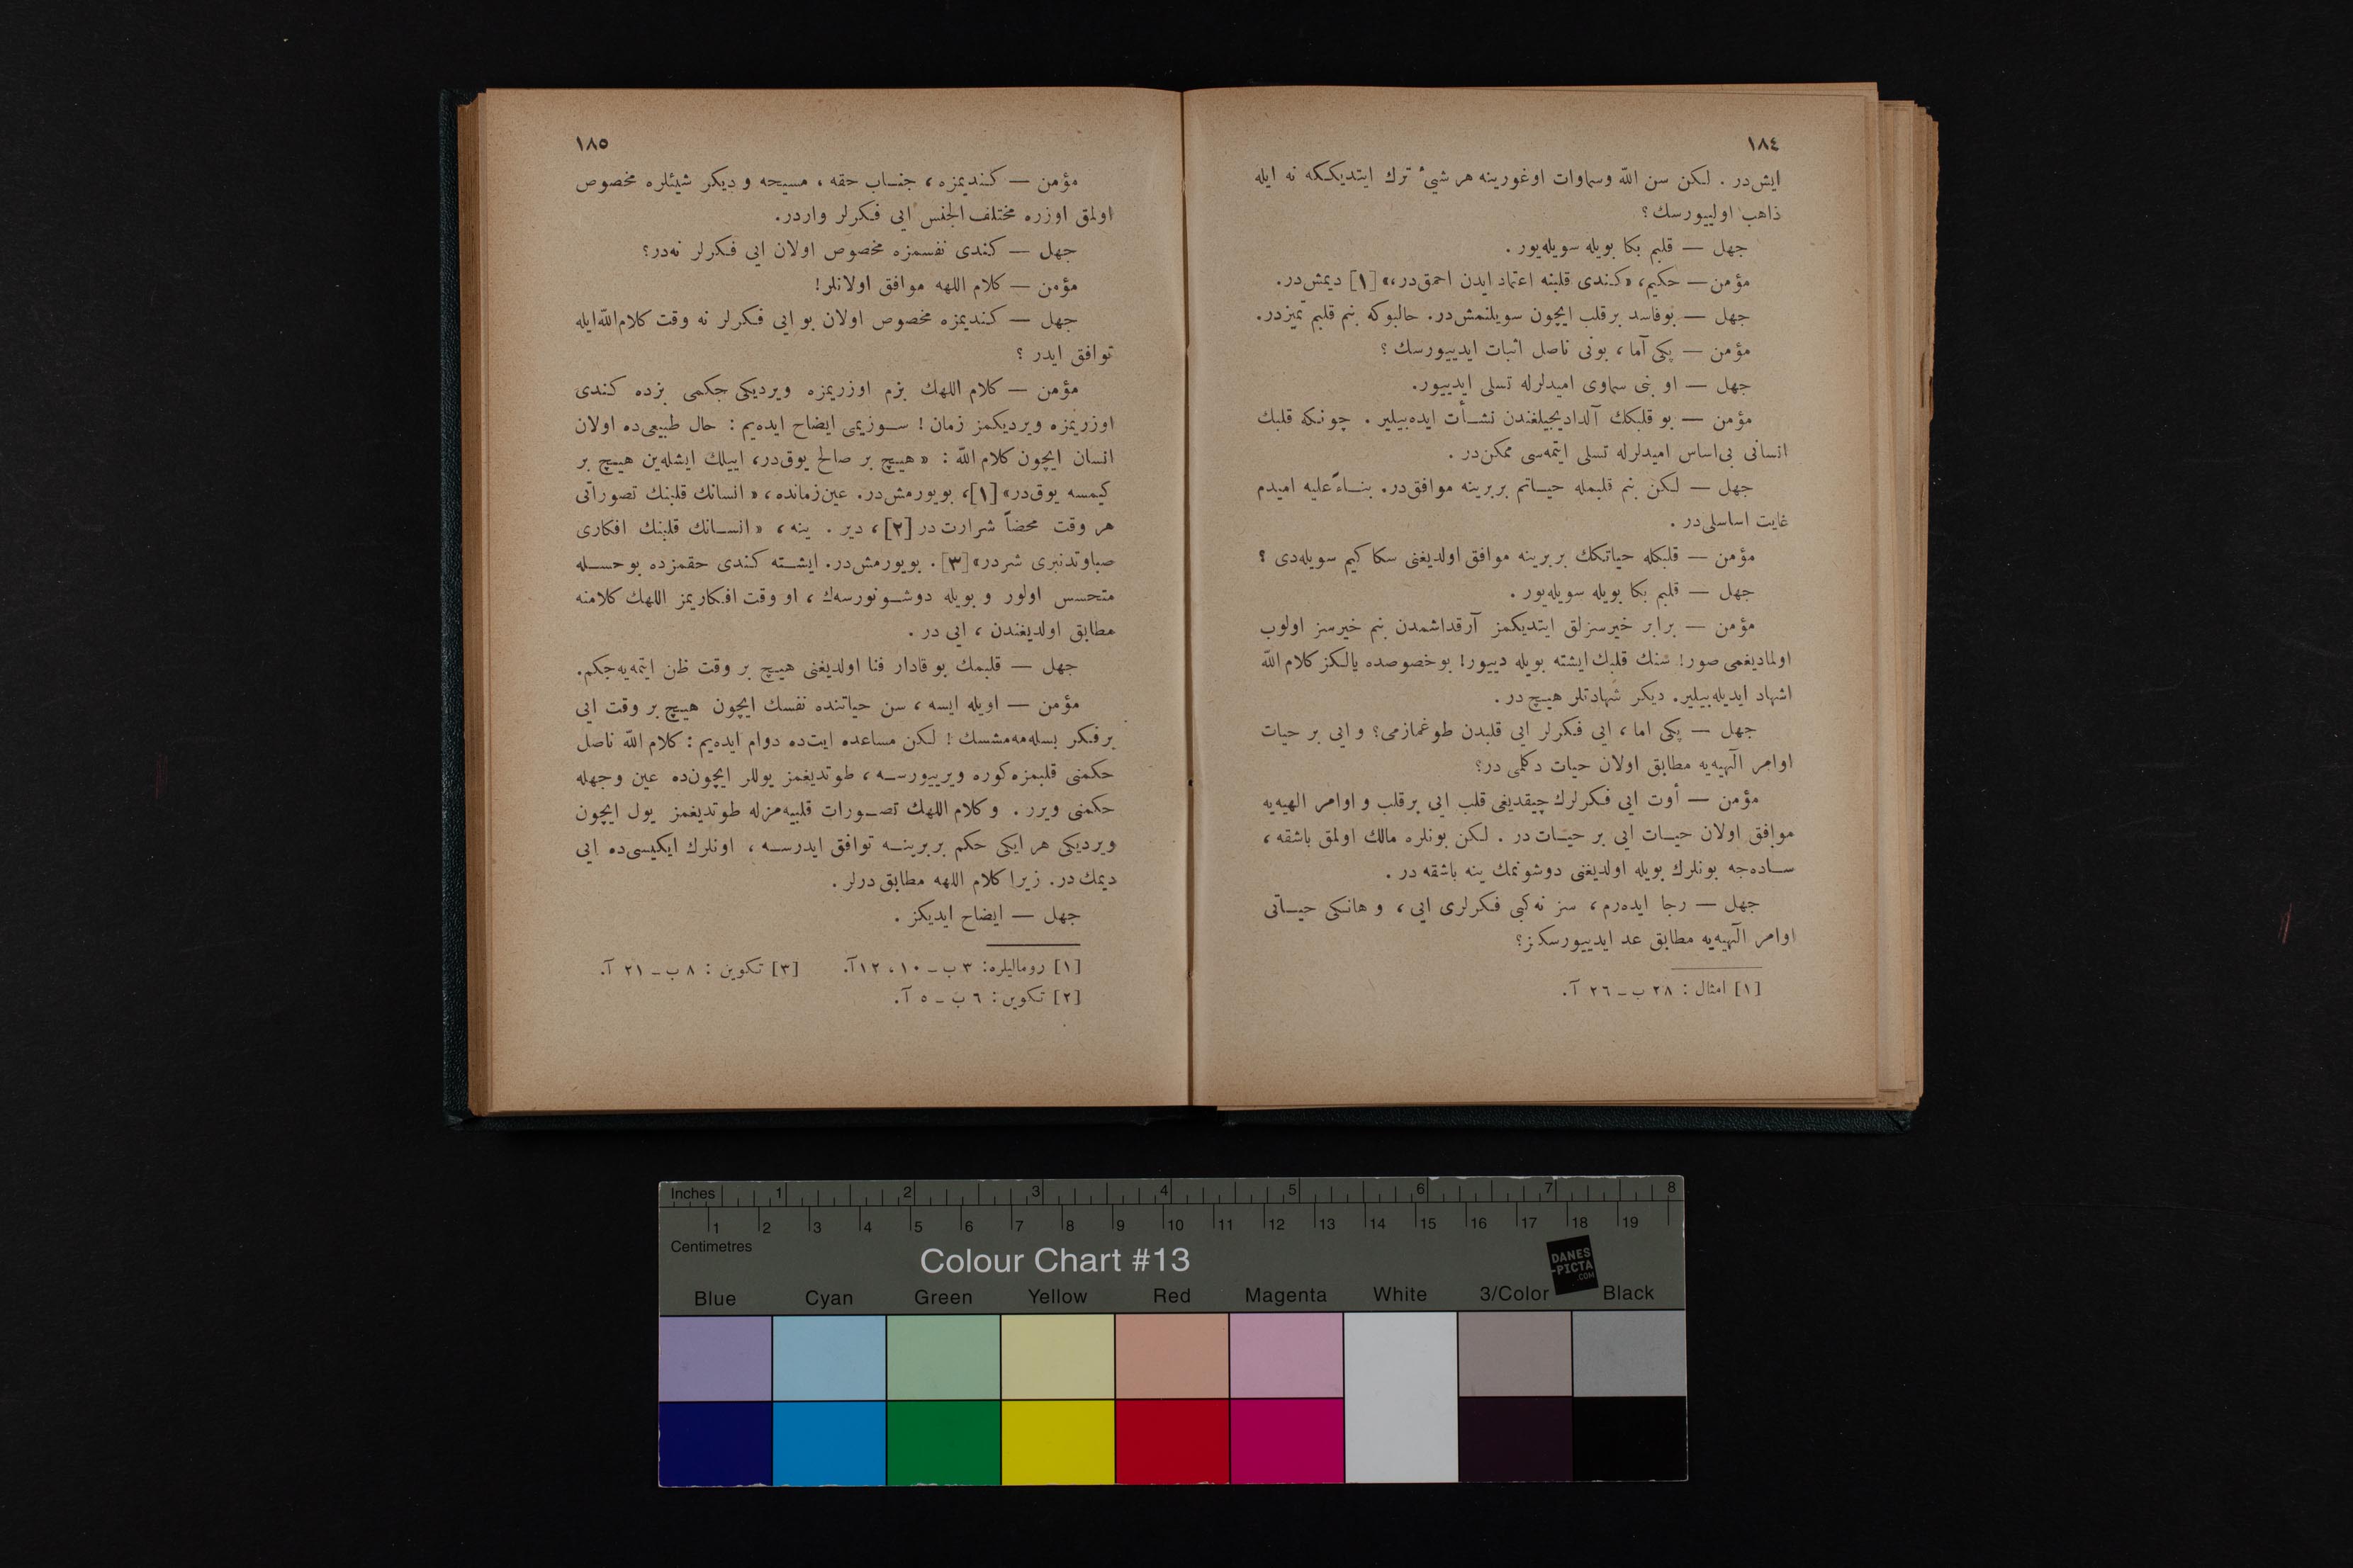 ١٨٤
ایش‌در . لـکن سن اللّٰه وسماوات اوغورینه هر شیٔ ترك ایتدیکـکه نه ایله
ذاهب اولییورسك؟
جهل — قلبم بکا بویله سویله‌یور .
مؤمن — حکیم، «کـندی قلبنه اعتماد ایدن احمق‌در،» [١] دیمش‌در.
جهل — بوفاسد برقلب ایچون سویلنمش‌در. حالبوکه بنم قلبم تمیزدر.
مؤمن — پکی آما ، بونی ناصل اثبات ایدییورسك ؟
جهل — او بنی سماوی امیدلرله تسلی ایدییور.
مؤمن — بو قلبکك آلدادیجیلغندن نشــأت ایده‌بیلیر . چونـکه قلبك
انسانی بی‌اساس امیدلرله تسلی ایتمه‌سی ممکن‌در .
جهل — لـکن بنم قلبمله حیــاتم بربرینه موافق‌در. بنــاءً علیه امیدم
غایت اساسلی‌در .
مؤمن — قلبکله حیاتکك بربرینه موافق اولدیغنی سکا کیم سویله‌دی ؟
جهل — قلبم بکا بویله سویله‌یور .
مؤمن — برابر خیرسزلق ایتدیکمز آرقداشمدن بنم خیرسز اولوب
اولمادیغمی صور! سنك قلبك ایشته بویله دییور! بوخصوصده یالـکز کلام اللّٰه
اشهاد ایدیله‌بیلیر. دیکر شهادتلر هیـچ در .
جهل — پکی اما ، ایی فـکرلر ایی قلبدن طوغمازمی؟ و ایی بر حیات
اوامر الٓهیه‌یه مطابق اولان حیات دکلمی در؟
مؤمن — أوت ایی فـکرلرك چیقدیغی قلب ایی برقلب و اوامر الهیه‌یه
موافق اولان حیــات ایی بر حیــات در . لـکن بونلره مالك اولمق باشقه ،
ســاده‌جه بونلرك بویله اولدیغنی دوشونمك ینه باشقه در .
جهل — رجا ایده‌رم ، سز نه‌کبی فـکرلری ایی ، و هانـکی حیــاتی
اوامر الٓهیه‌یه مطابق عد ایدییورسکـز؟
[١] امثال : ٢٨ ب ـ ٢٦ آ.
١٨٥
مؤمن — کـندیمزه ، جنــاب حقه ، مسیحه و دیکر شیئلره مخصوص
اولمق اوزره مختلف‌الجنس ایی فـکرلر واردر.
جهل — کـندی نفسمزه مخصوص اولان ایی فـکرلر نه‌در؟
مؤمن — کلام اللهه موافق اولانلر!
جهل — کـندیمزه مخصوص اولان بو ایی فـکرلر نه وقت کلام‌اللّٰه‌ایله
توافق ایدر ؟
مؤمن — کلام اللهك بزم اوزریمزه ویردیکی حکمی بزده کـندی
اوزریمزه ویردیکمز زمان ! ســوزیمی ایضاح ایده‌یم : حال طبیعی‌ده اولان
انسان ایچون کلام اللّٰه : « هیـچ بر صالح یوق‌در، اییلك ایشله‌ین هیـچ بر
کیمسه یوق‌در» [١]، بویورمش‌در. عین‌زمانده، « انسانك قلبنك تصوراتی
هر وقت محضاً شرارت در [٢]، دیر . ینه ، « انســانك قلبنك افکاری
صباوتدنبری شردر» [٣] . بویورمش‌در. ایشــته کـندی حقمزده بوحســله
متحسس اولور و بویله دوشــونورسه‌ك ، او وقت افکاریمز اللهك کلامنه
مطابق اولدیغندن ، ایی در .
جهل — قلبمك بو قادار فنا اولدیغنی هیـچ بر وقت ظن ایتمه‌یه‌جکم.
مؤمن — اویله ایسه ، سن حیاتنده نفسك ایچون هیـچ بر وقت ایی
برفـکر بسله‌مه‌مشسك ! لـکن مساعده ایت‌ده دوام ایده‌یم : کلام اللّٰه ناصل
حکمنی قلبمزه کوره ویرییورســه ، طوتدیغمز یوللر ایچون‌ده عین وجهله
حکمنی ویرر . و کلام اللهك تصــورات قلبیه‌مزله طوتدیغمز یول ایچون
ویردیکی هر ایکی حکم بربرینــه توافق ایدرســه ، اونلرك ایکیسی‌ده ایی
دیمك‌در. زیرا کلام اللهه مطابق درلر .
جهل — ایضاح ایدیکز .
[١] رومالیلره: ٣ ب ـ ١٠ ، ١٢ آ.    [٣] تـکوین : ٨ ب ـ ٢١ آ.
[٢] تـکوین : ٦ ب ـ ٥ آ.
Inches 1 2 3 4 5 6 7 8
1 2 3 4 5 6 7 8 9 10 11 12 13 14 15 16 17 18 19
Centimetres
Colour Chart #13
DANES
-PICTA
.COM
Blue Cyan Green Yellow Red Magenta White 3/Color Black